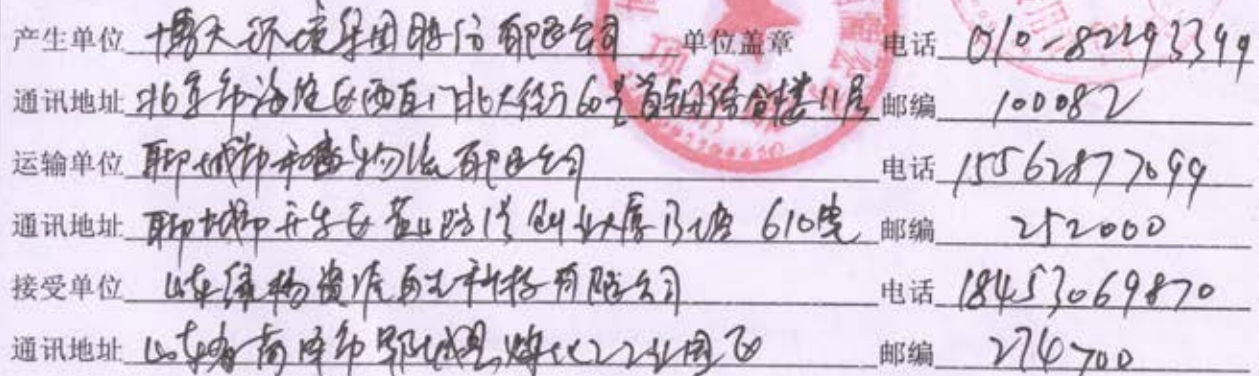 产生单位 博天环境集团股份有限公司 单位盖章 电话 010-82293399
通讯地址 北京市海淀区西直门北大街60号首钢综合楼11层 邮编 100082
运输单位 聊城市 物流有限公司 电话 15562877099
通讯地址 聊城市开发区 路1号创业大厦B座 610室 邮编 252000
接受单位 山东 物资 科技有限公司 电话 18453069870
通讯地址 山东省菏泽市郓城县煤化工工业园区 邮编 274700
项目